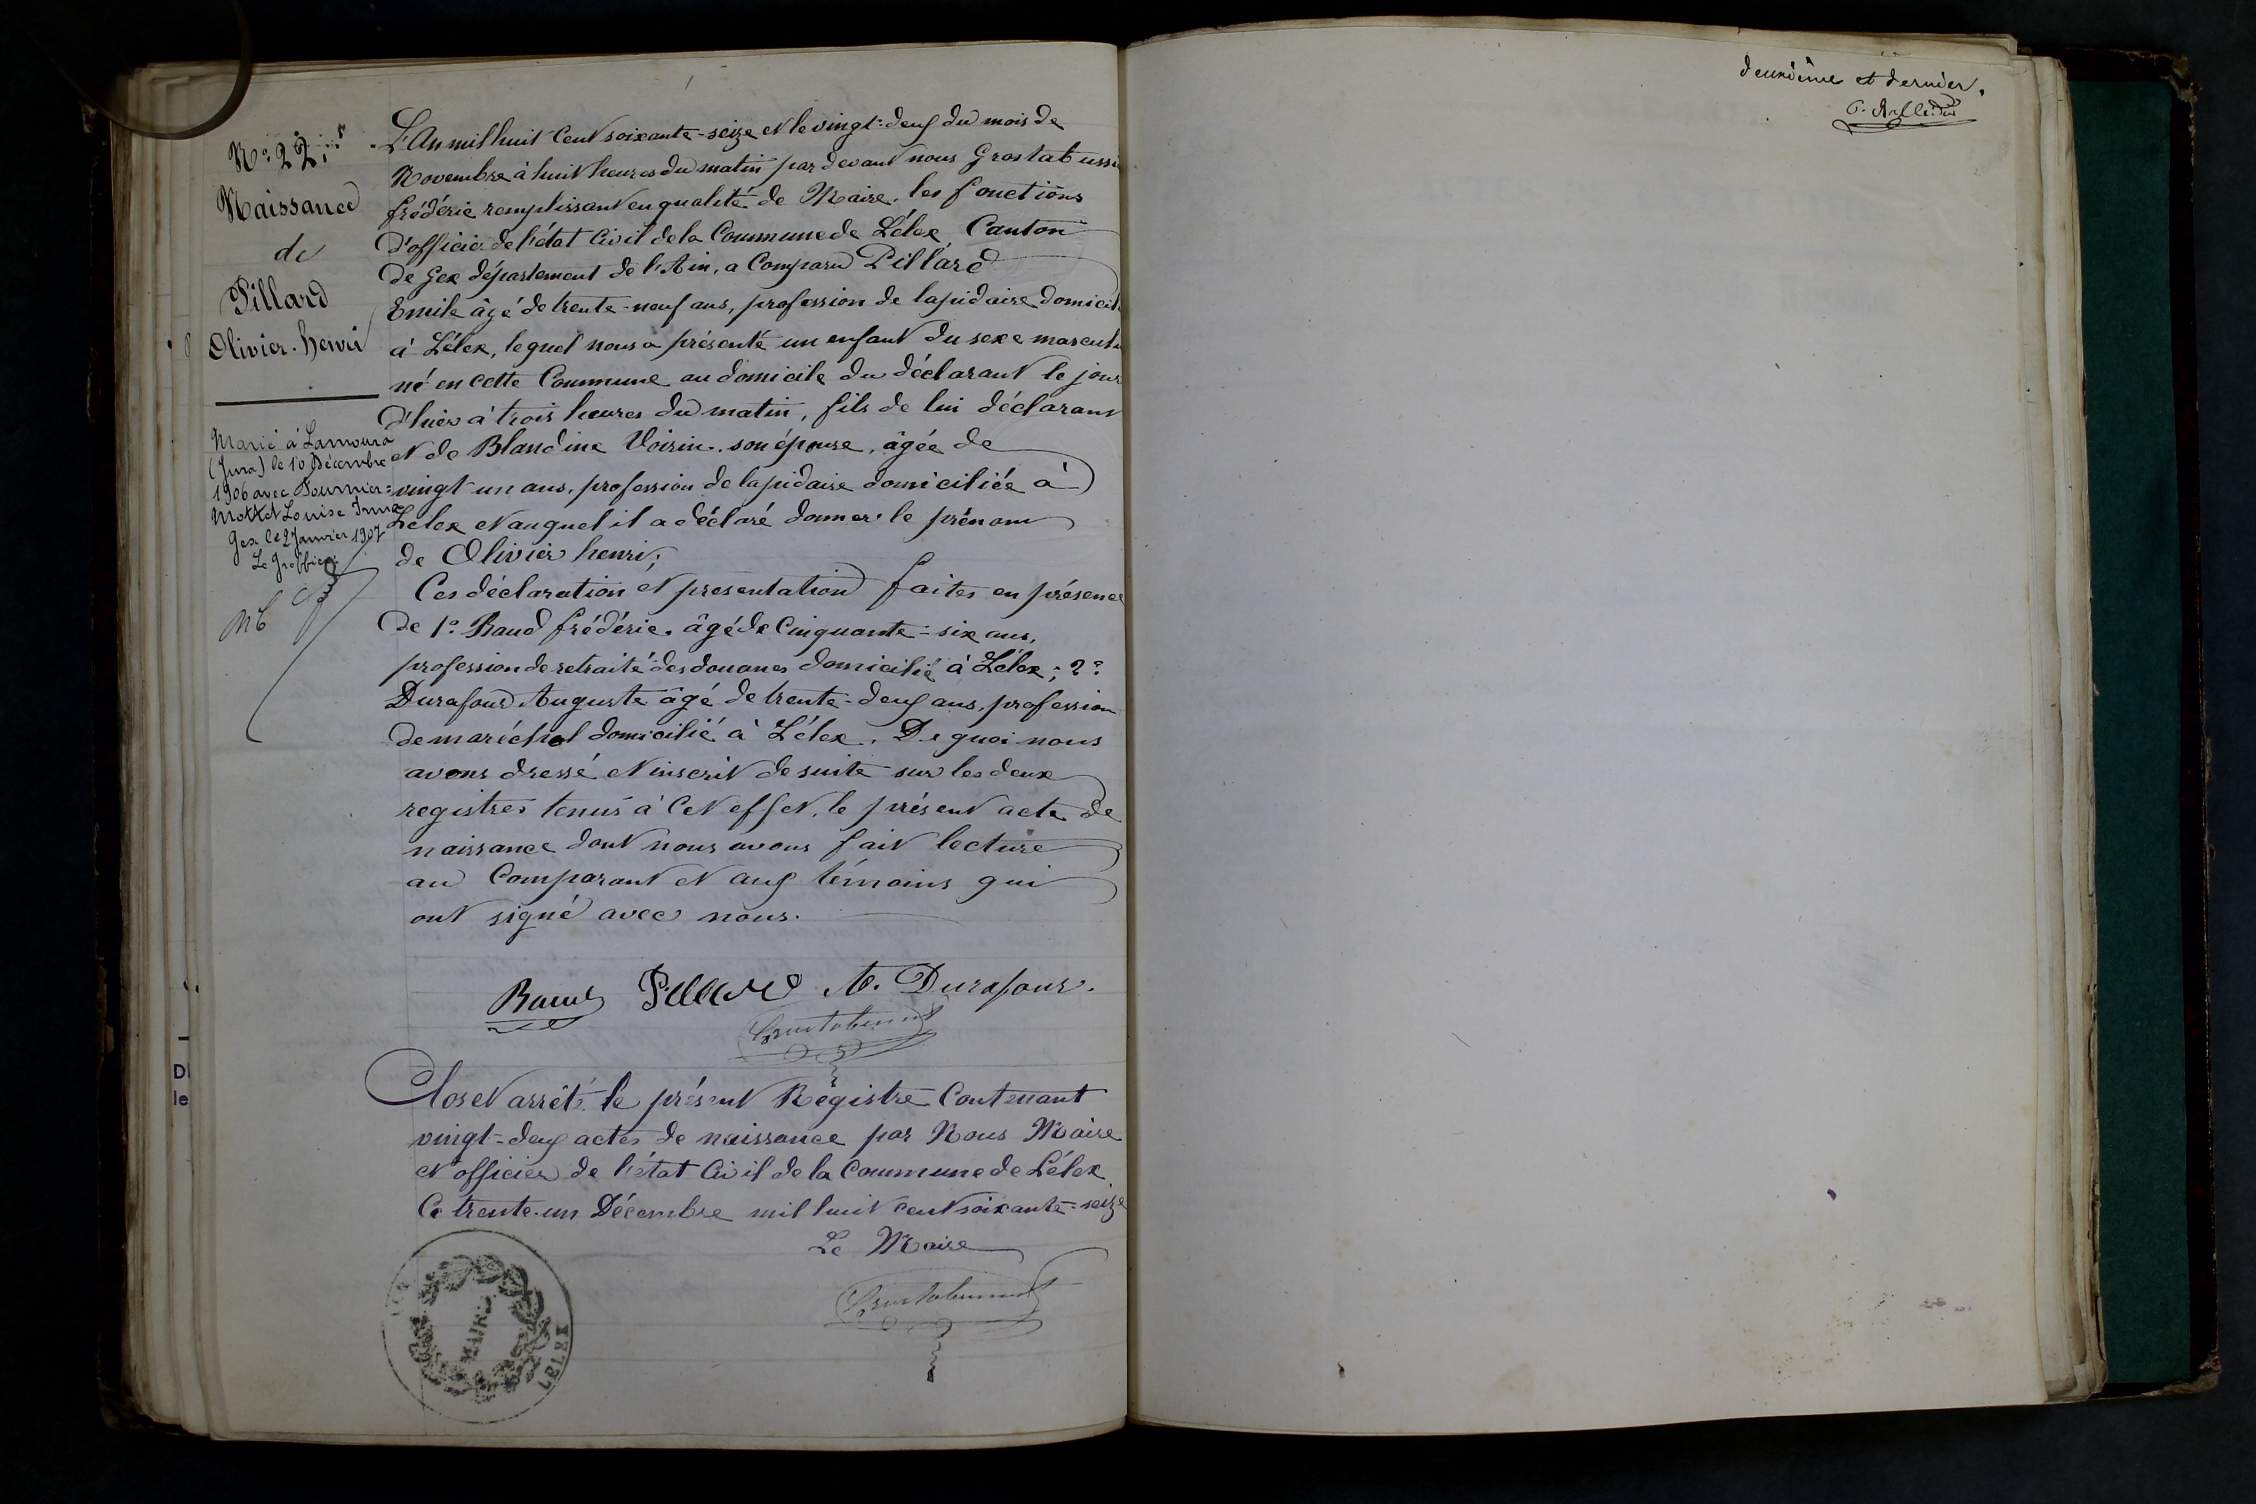 N° 22.
Naissance
de
Pillard
Olivier-henri
Marié à Lamoura
(Jura) le 10 Décembre
1906 avec Fournier-
Mottet Louise Irma
Gex le 2 Janvier 1907
Le greffier
L'An mil huit Cent soixante-seize et le vingt-deux du mois de
Novembre à huit heures du matin par devant nous Grostabussia
frédéric remplissant en qualité de Maire, les fonctions
d'officier de l'état Civil de la Commune de Lélex Canton
de Gex département de l'Ain, a Comparu Pillard
Emile âgé de trente-neuf ans, profession de lapidaire domicil
à Lélex, lequel nous a présenté un enfant du sexe masculin
né en cette Commune au domicile du déclarant le jour
d'hier à trois heures du matin, fils de lui déclarant
et de Blandine Voisin, son épouse, âgée de
vingt-un ans, profession de lapidaire domiciliée à
Lélex et auquel il a déclaré donner le prénom
de Olivier henri;
Ces déclaration et presentation faites en présence
de 1° Baud frédéric, âgé de Cinquante-six ans,
profession de retraité des douanes domicilié à Lélex; 2°
Durafour Auguste âgé de trente-deux ans, profession
de maréchal domicilié à Lélex. De quoi nous
avons dressé et inscrit de suite sur les deux
registres tenus à Cet effet, le présent acte de
naissance dont nous avons fait lecture
au Comparant et aux témoins qui
ont signé avec nous.
Baud Pillard A. Durafour.
Clos et arrêté le présent Registre Contenant
vingt-deux actes de naissance par Nous Maire
et officier de l'état Civil de la Commune de Lélex
Ce trente-un Décembre mil huit cent soixante-seize
Le Maire
MAIRIE
LELEX
deuxième et dernier.